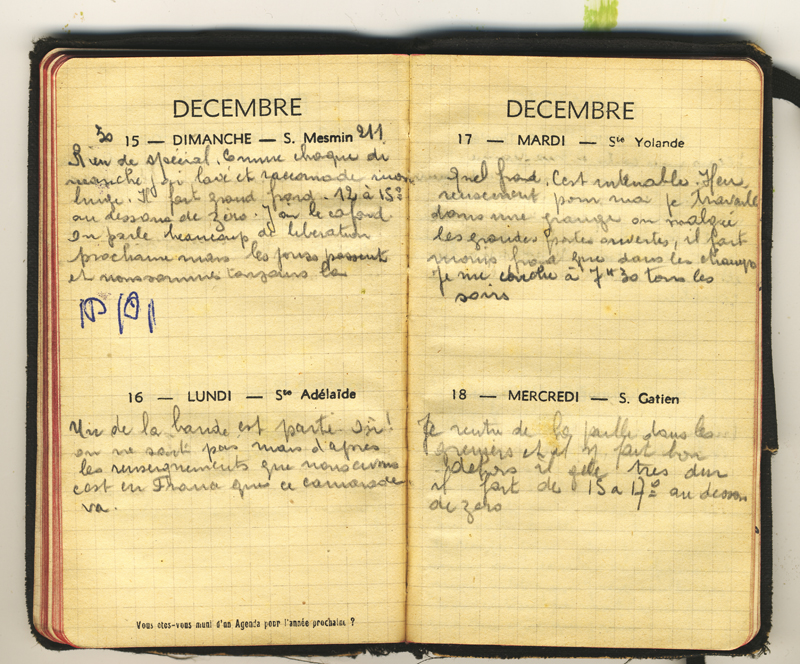 DECEMBRE
30 15 — DIMANCHE — S. Mesmin 211
Rien de spécial. Comme chaque di
manche j'ai lavé et racomode mon
linge. Il fait grand froid. 12 à 15°
au dessous de zéro. J'ai le cafard
on parle beaucoup de libération
prochaine mais les jours passent
et nous sommes toujours la
16 — LUNDI — Ste Adélaïde
Un de la bande est partie. Où!
on ne sait pas mais d'après
les renseignements que nous avons
cest en France que ce camarade
va.
Vous etes-vous muni d'un Agenda pour l'année prochaine ?
DECEMBRE
17 — MARDI — Ste Yolande
Quel froid. C'est intenable. Heu
reusement pour moi je travaille
dans une grange ou malgré
les grandes portes ouvertes, il fait
moins froid que dans les champs
Je me couche à 7H30 tous les
soirs
18 — MERCREDI — S. Gatien
Je rentre de la paille dans les
greniers et il y fait bon
dehors il gèle très dur
il fait de 15 a 17° au dessous
de zero